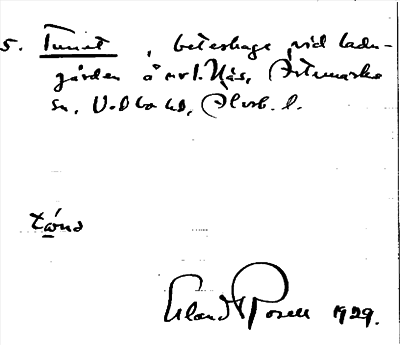 5. Tunet, beteshage vid ladu-
gården å nrl. Näs, Ärtemarks
sn, V-dbo hd, Älvsb. l.
Erland Rosell 1929.